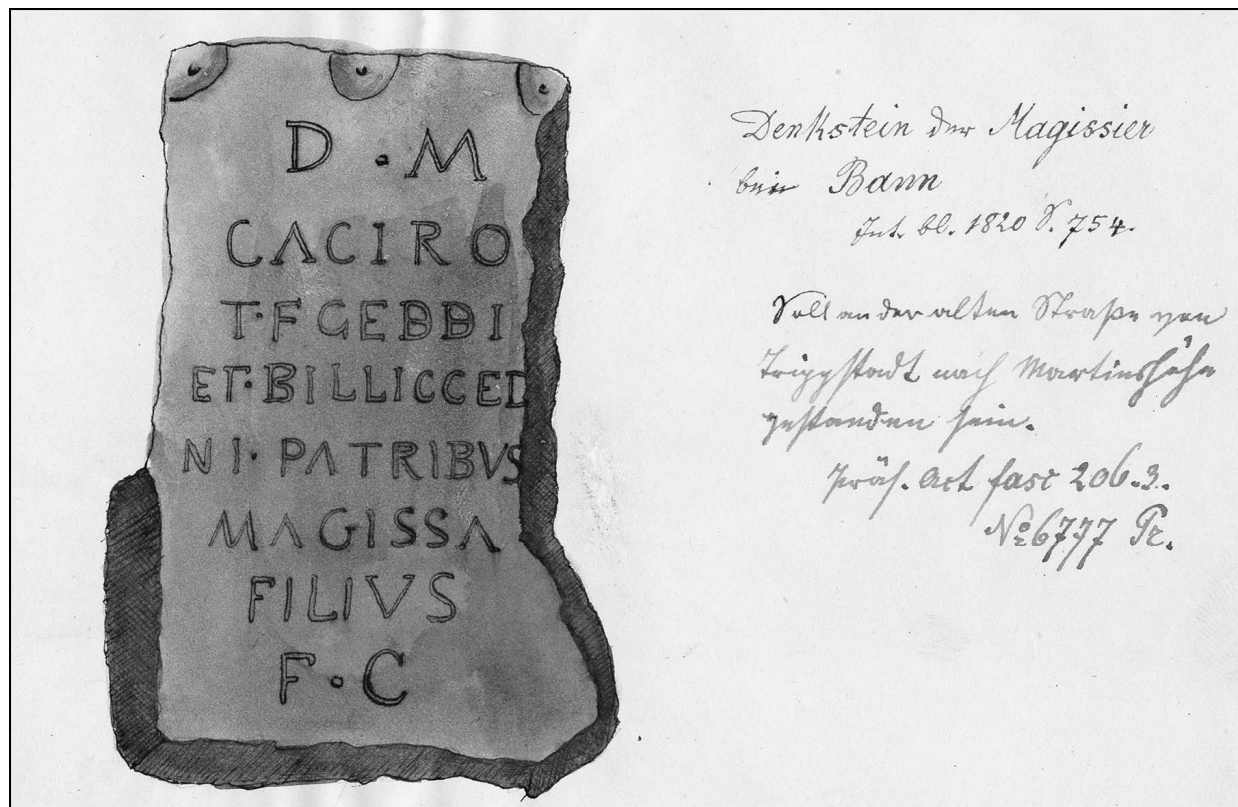 D . M
CACIRO
T·F GEDDI
ET·BILLICCED
NI· PATRIBVS
MAGISSA
FILIVS
F·C
Denkstein der Magissier
bei Bann
Int. bl. 1820 S. 754.
Soll an der alten Straße von
Trippstadt nach Martinshöhe
gestanden sein.
Präs. Act fasc 206.3.
No 6777 Pr.